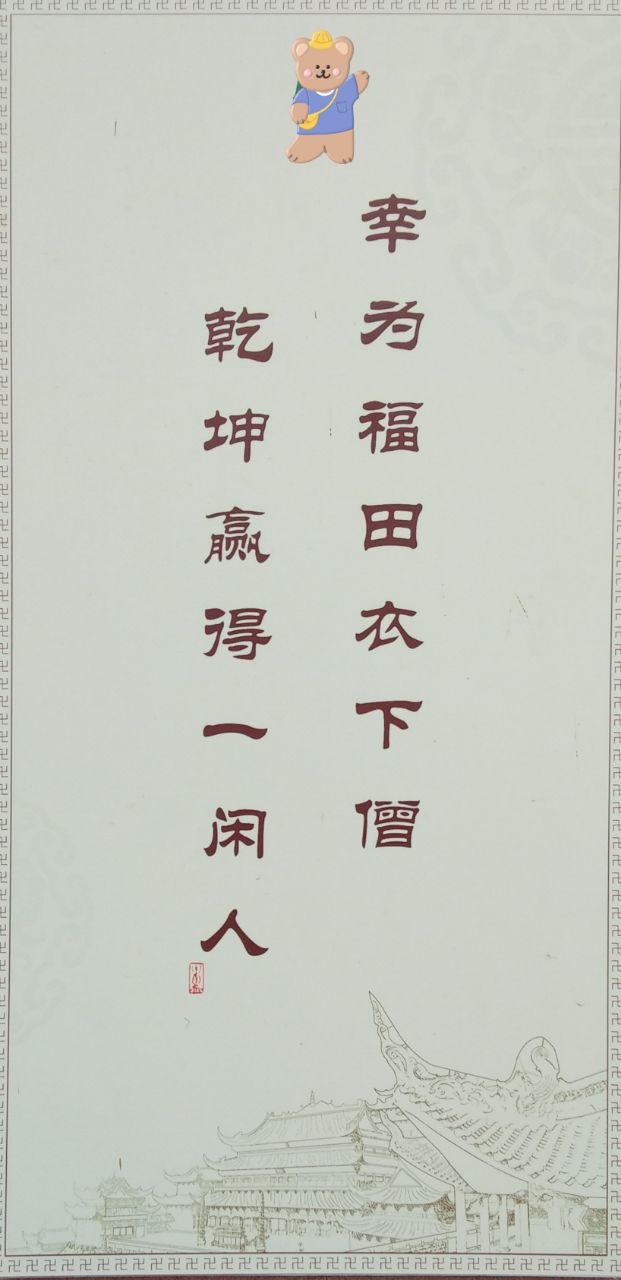 幸为福田衣下僧
乾坤赢得一闲人